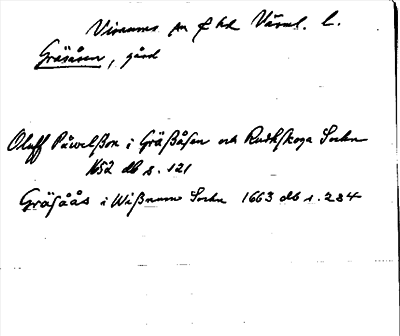 Visnums sn f hd Värml. l.
Gräsåsen, gård
Oluff Påwelßon i Gräßåsen och Rudkskoga Sockn
1652 db s. 121
Gräsåås i Wißnums Sockn 1663 db s. 284